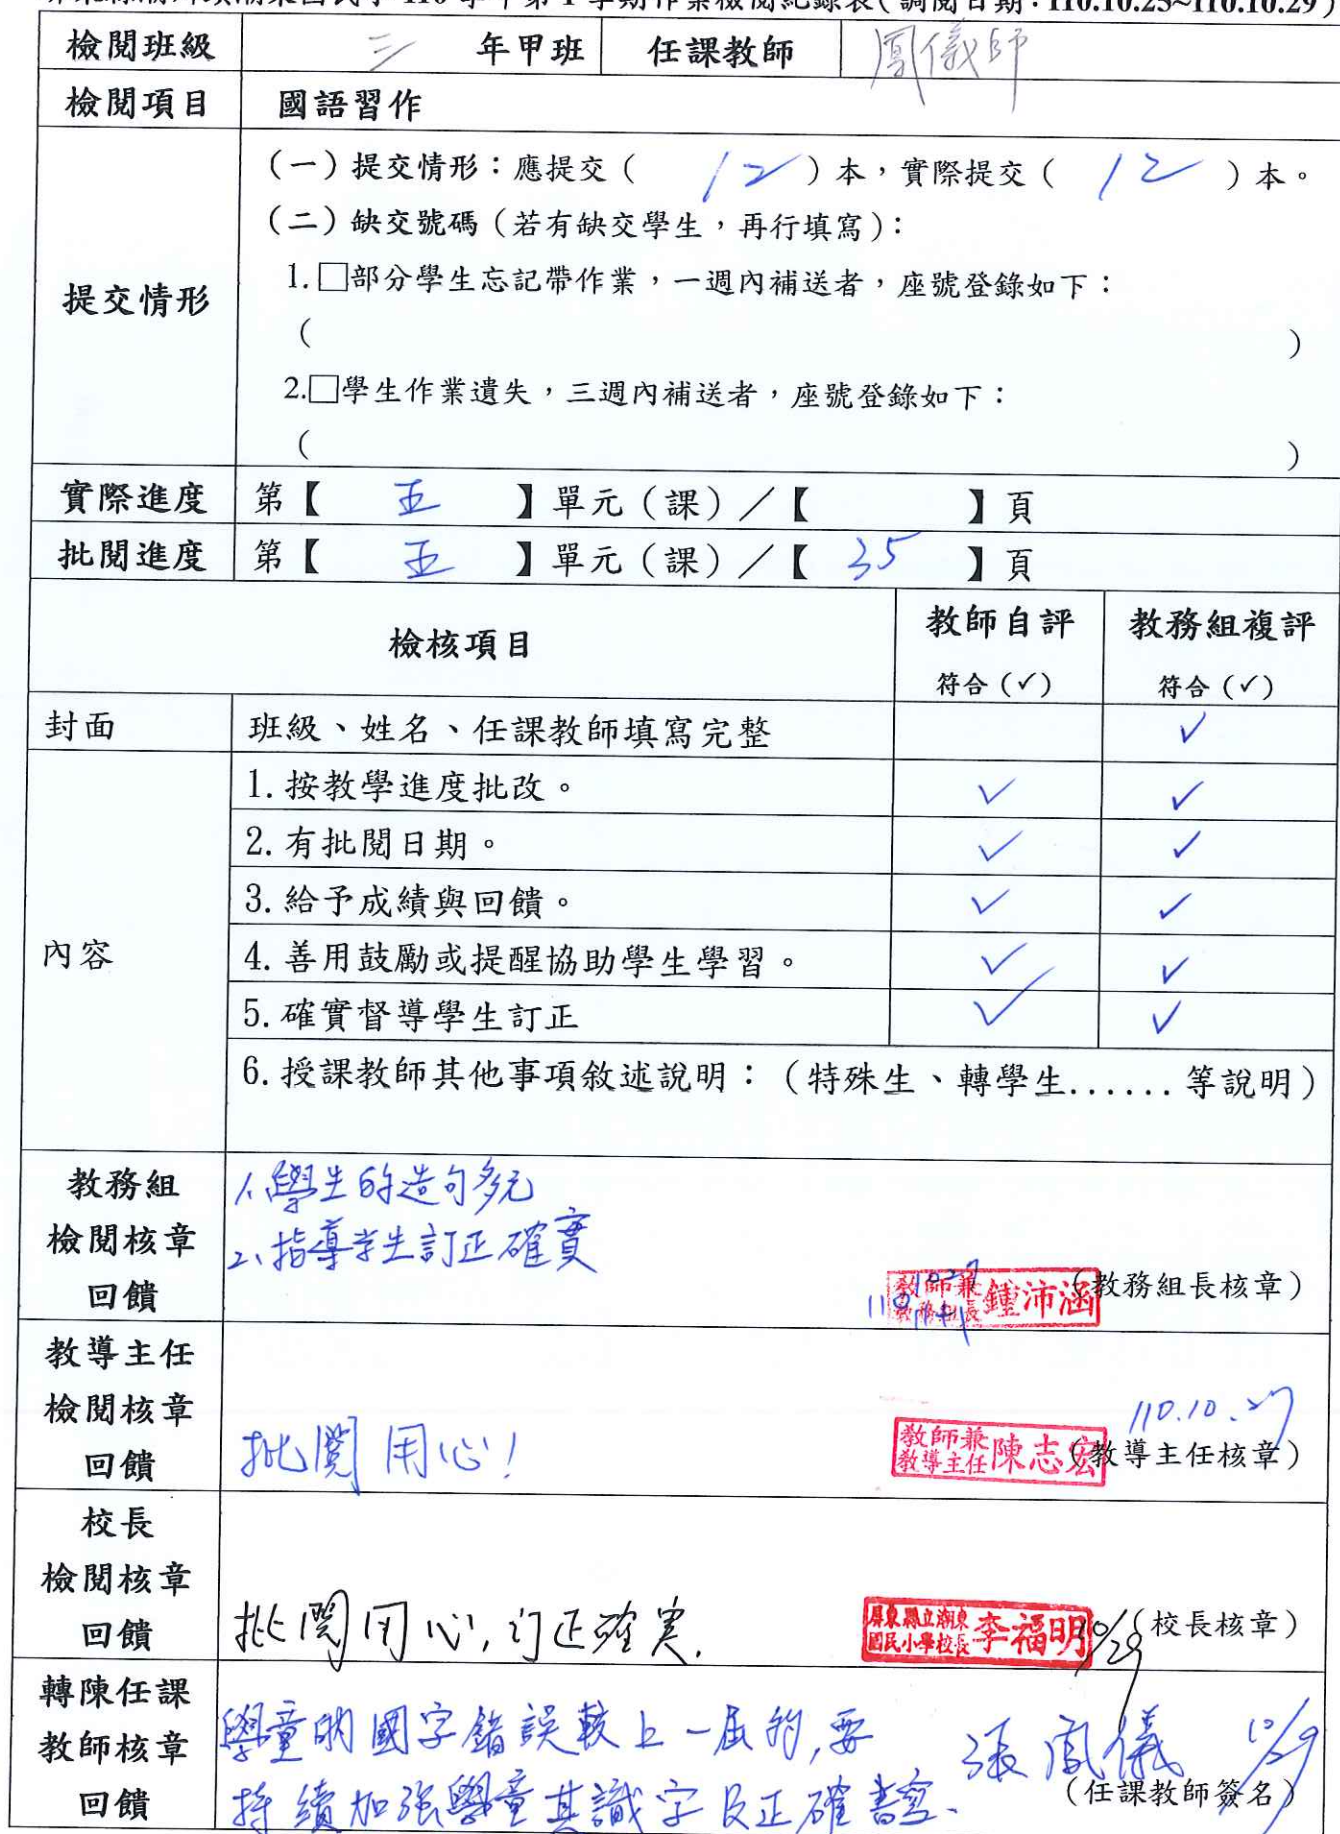 學年第1學期作業檢閱紀錄表(調閱日期:110.10.25~110.10.29)
檢閱班級 三 年甲班 任課教師 鳳儀師
檢閱項目 國語習作
提交情形
(一)提交情形:應提交( 12 )本,實際提交( 12 )本。
(二)缺交號碼(若有缺交學生,再行填寫):
1.□部分學生忘記帶作業,一週內補送者,座號登錄如下:
( )
2.□學生作業遺失,三週內補送者,座號登錄如下:
( )
實際進度 第【 五 】單元(課)/【 】頁
批閱進度 第【 五 】單元(課)/【 35 】頁
檢核項目 教師自評 教務組複評
符合(✓) 符合(✓)
封面 班級、姓名、任課教師填寫完整 ✓
內容
1.按教學進度批改。 ✓ ✓
2.有批閱日期。 ✓ ✓
3.給予成績與回饋。 ✓ ✓
4.善用鼓勵或提醒協助學生學習。 ✓ ✓
5.確實督導學生訂正 ✓ ✓
6.授課教師其他事項敘述說明:(特殊生、轉學生......等說明)
教務組
檢閱核章
回饋
1、學生的造句多元
2、指導学生訂正確實
教師兼 教務組長 鍾沛涵 (教務組長核章)
教導主任
檢閱核章
回饋
批閱用心!
110.10.27
教師兼 教導主任 陳志宏 (教導主任核章)
校長
檢閱核章
回饋
批閱用心,訂正確实.
屏東縣立潮東 國民小學校長 李福明 10/29 (校長核章)
轉陳任課
教師核章
回饋
學童的國字錯誤較上一屆的,要
持續加強學童其識字及正確書寫、
張鳳儀 10/29
(任課教師簽名)